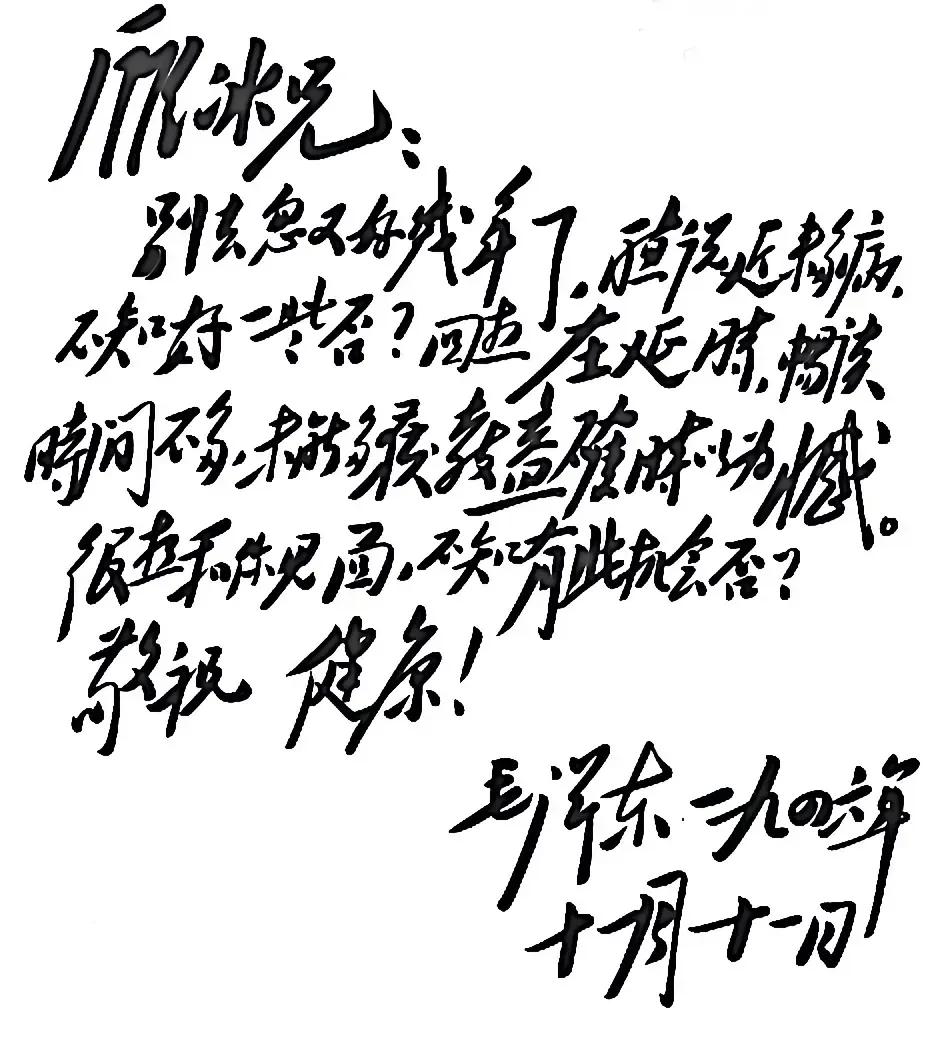 雁冰兄：
别去忽又好幾年了，聽说近来多病，
不知好一些否？回想在延時，暢谈
時间不多，未能多獲教益 時以为憾。
很想和你见面，不知有此机会否？
敬祝 健康！
毛泽东 一九四六年
十一月十一日